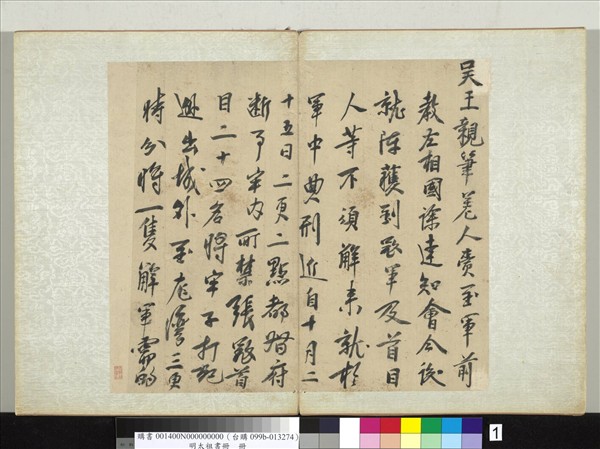 吳王親筆差人賫至軍前
教左相國徐達知會今後
就陣獲到寇軍及首目
人等不須解來就於
軍中典刑近自十月二
十五日二更二點都督府
斷事牢內所禁張寇首
目二十四名將牢子打死
越出城外至龍灣三更
時分將一隻解軍需的
購書 001400N000000000 ( 台購 099b-013274 )
明太祖書冊 冊
1